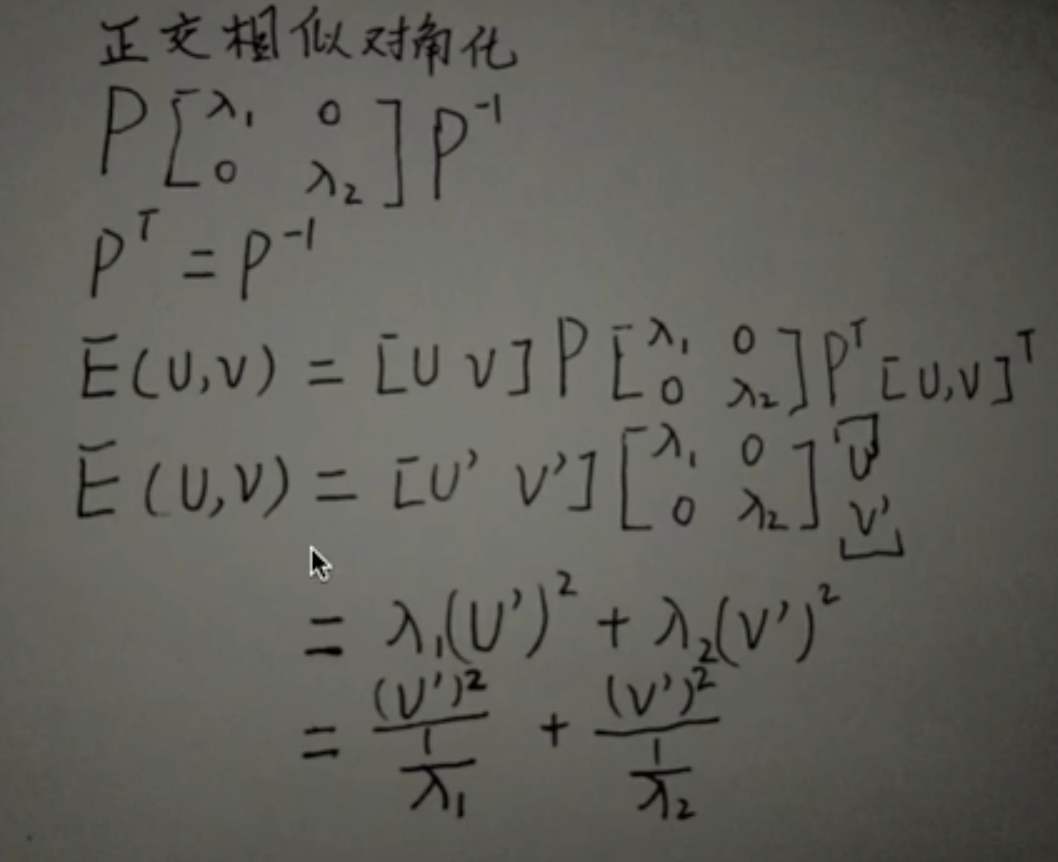 正交相似对角化
P [λ₁ 0; 0 λ₂] P⁻¹
Pᵀ = P⁻¹
E(U,V) = [U V] P [λ₁ 0; 0 λ₂] Pᵀ [U,V]ᵀ
E(U,V) = [U' V'] [λ₁ 0; 0 λ₂] [U; V']
= λ₁(U')² + λ₂(V')²
= (U')²/(1/λ₁) + (V')²/(1/λ₂)